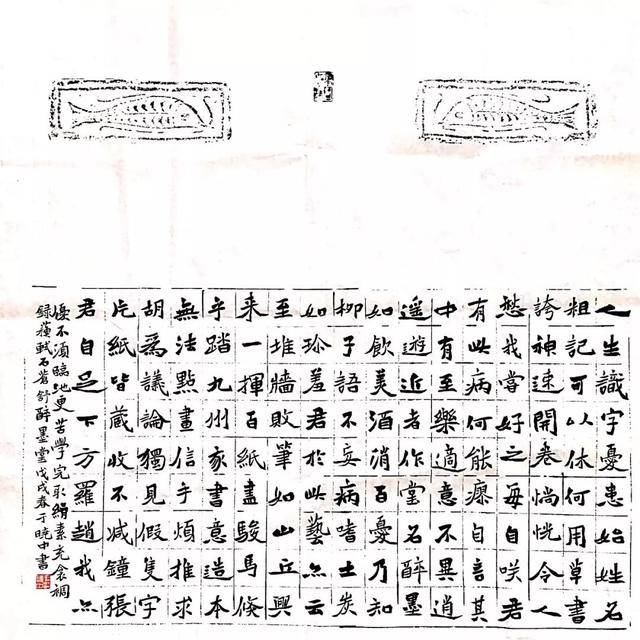 人生識字憂患始姓名
粗記可以休何用草書
誇神速開卷惝怳令人
愁我嘗好之每自咲君
有此病何能瘳自言其
中有至樂適意不異逍
遥遊近者作堂名醉墨
如飲美酒消百憂乃知
柳子語不妄病嗜土炭
如珍羞君於此藝亦云
至堆牆敗筆如山丘興
来一揮百紙盡駿馬倏
乎踏九州家書意造本
無法點畫信手煩推求
胡為議論獨見假隻字
片紙皆藏收不减鐘張
君自足下方羅趙我亦
優不須臨池更苦學完取絹素充衾裯
録蘓軾石蒼舒醉墨堂戊戌春于曉中書